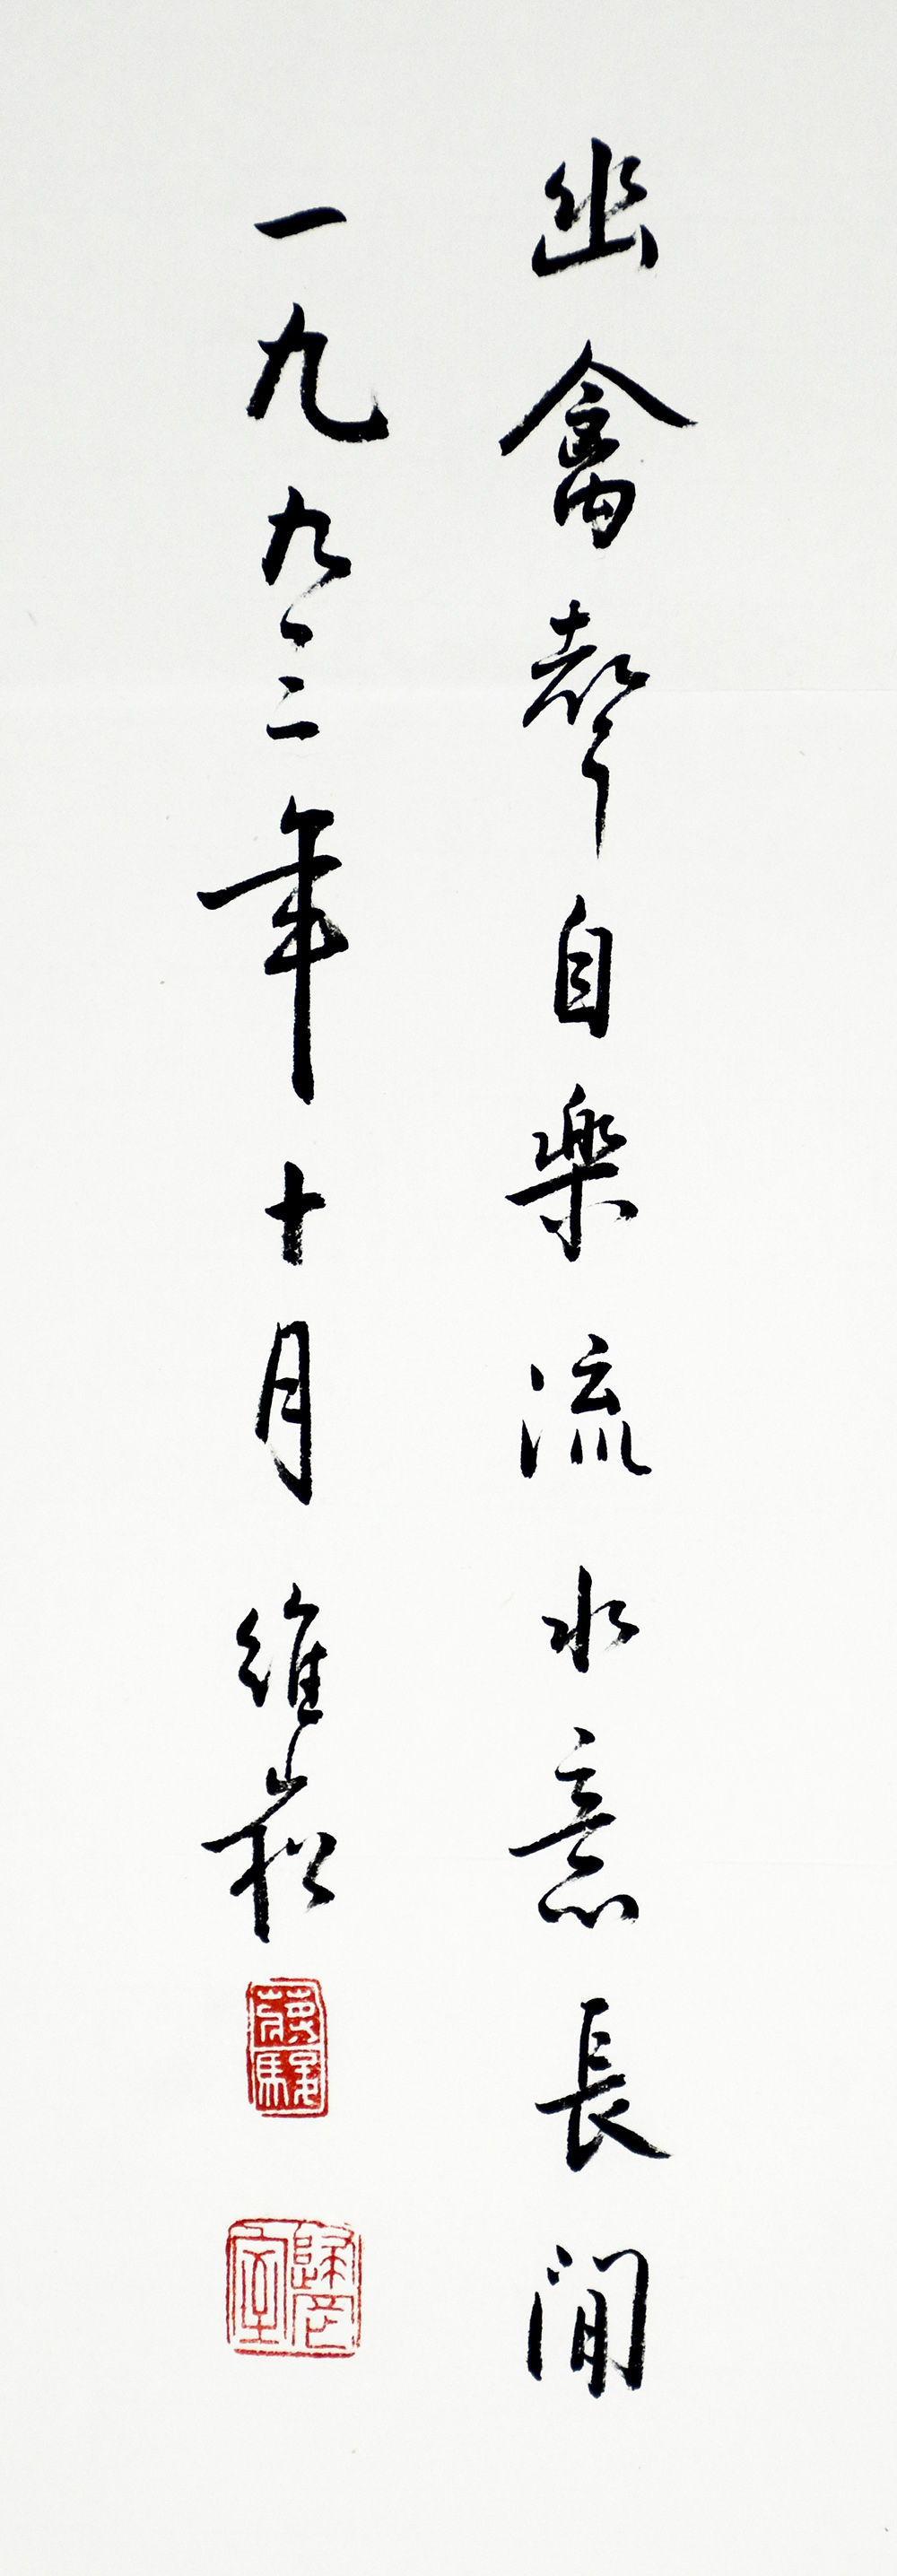 幽禽聲自樂流水意長閒
一九九三年十月維崧